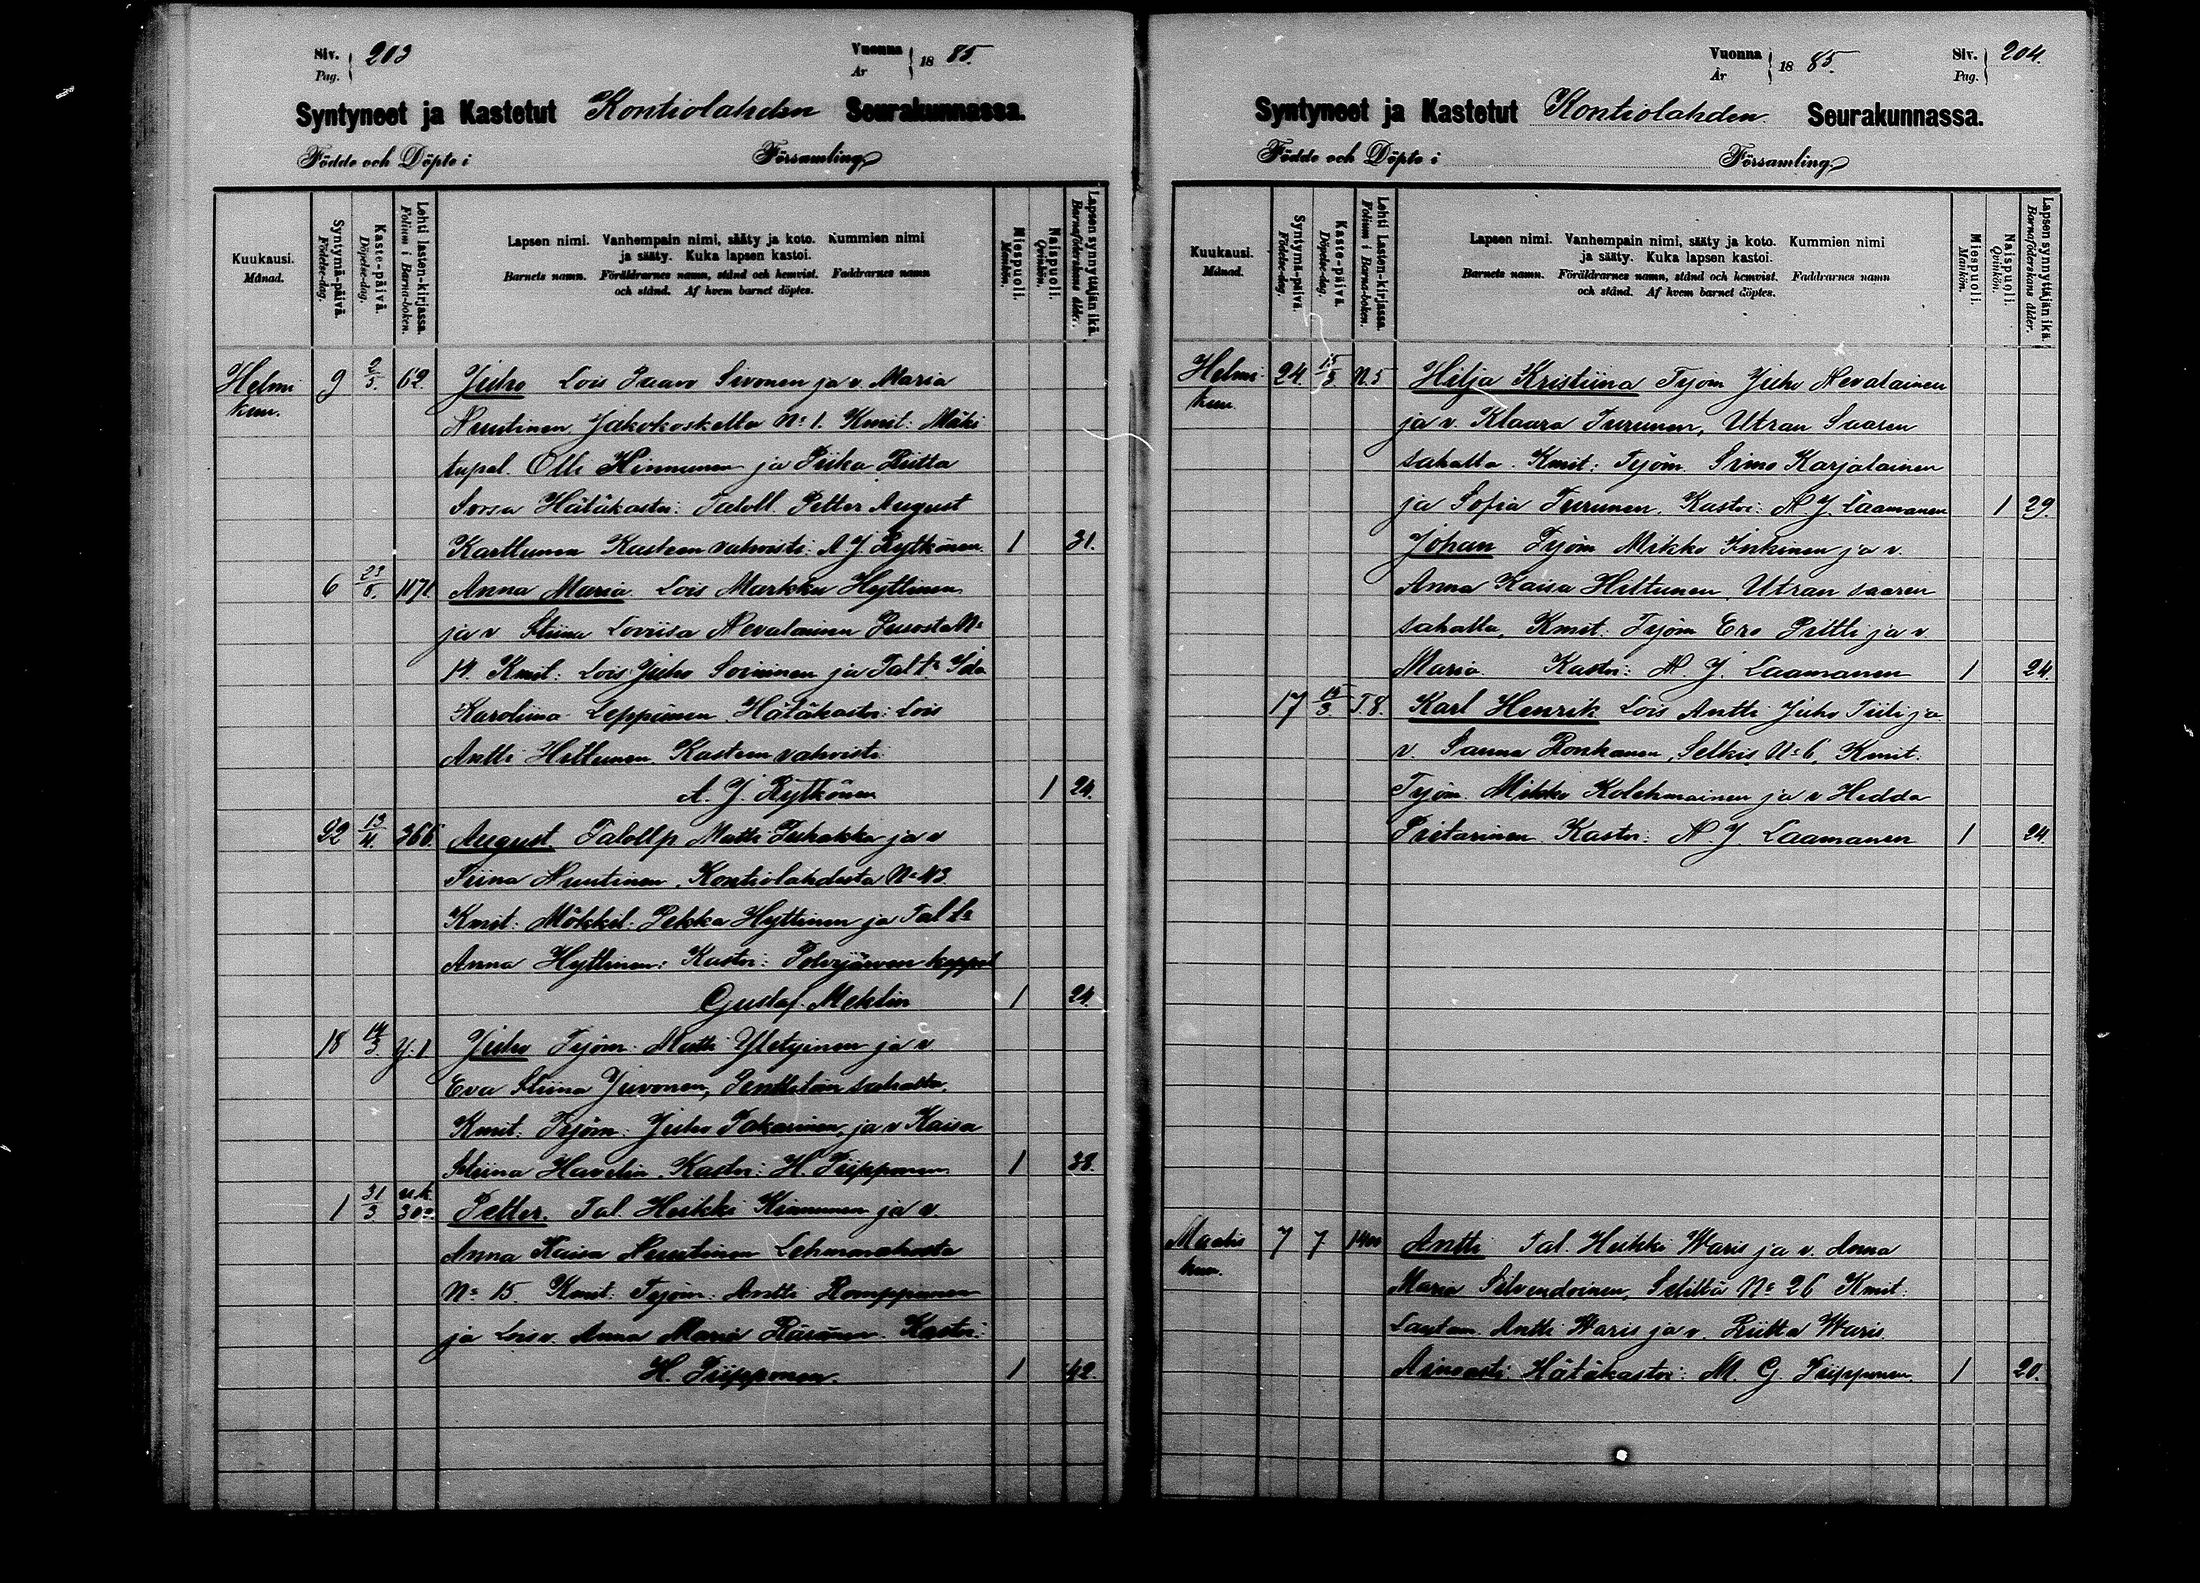 Siv. 203
Pag.
Vuonna 1885.
År
Syntyneet ja Kastetut Kontiolahden Seurakunnassa.
Födde och Döpte i Församling
Kuukausi.
Månad.
Syntymä-päivä.
Födelse-dag.
Kaste-päivä.
Döpelse-dag.
Lehti lasten-kirjassa.
Folium i Barna-boken.
Lapsen nimi. Vanhempain nimi, sääty ja koto. Kummien nimi
ja sääty. Kuka lapsen kastoi.
Barnets namn. Föräldrarnes namn, stånd och hemvist. Faddrarnes namn
och stånd. Af hvem barnet döptes.
Miespuoli.
Mankön.
Naispuoli.
Qvinkön.
Lapsen synnyttäjän ikä.
Barnaföderskans ålder.
Helmi 9 62. Juho Lois Paavo Sivonen ja v. Maria
kuu. Nuutinen Jakokoskelta No 1. Kmit: Mäki
tupal. Olli Kinnunen ja Piika Riitta
Sorsa Hätäkastoi: Taloll. Petter August
Karttunen Kasteen vahvisti: A J Rytkönen. 1 31.
6 23/8. 1171. Anna Maria Lois Markku Hyttinen
ja v Stiina Loviisa Nevalainen Puso​sta No
14. Kmit: Lois Juho Sorminen ja Tal tr Ida
Karoliina Leppänen. Hätäkastoi: Lois
Antti Hiltunen Kasteen vahvisti:
A. J. Rytkönen 1 24.
22 13/4. 366. August Talollp Matti Puhakka ja v
Stiina Nuutinen, Kontiolahdesta No 43.
Kmit: Mökkil: Pekka Hyttinen ja Tal tr
Anna Hyttinen: Kastoi: Polvijärven kappal
Gustaf Meklin 1 24.
18 14/3. Y. 1 Juho Työm: Matti Yletyinen ja v
Eva Stiina Juvonen, Penttilän sahalta.
Kmit: Työm: Juho Pakarinen, ja v Kaisa
Stiina Havelin. Kastoi: H. Piipponen 1 38.
1 31/3 u.k. 302. Petter. Tal. Heikki Kinnunen ja v.
Anna Kaisa Nuutinen Lehmonahosta
No 15. Kmit: Työm: Antti Romppanen
ja Lois v. Anna Maria Räsänen. Kastoi:
H. Piipponen. 1 42.
Vuonna 1885.
År
Siv. 204.
Pag.
Syntyneet ja Kastetut Kontiolahden Seurakunnassa.
Födde och Döpte i Församling
Kuukausi.
Månad.
Syntymä-päivä.
Födelse-dag.
Kaste-päivä.
Döpelse-dag.
Lehti Lasten-kirjassa.
Folium i Barna-boken.
Lapsen nimi. Vanhempain nimi, sääty ja koto. Kummien nimi
ja sääty. Kuka lapsen kastoi.
Barnets namn. Föräldrarnes namn, stånd och hemvist. Faddrarnes namn
och stånd. Af hvem barnet döptes.
Miespuoli.
Mankön.
Naispuoli.
Qvinkön.
Lapsen synnyttäjän ikä.
Barnaföderskans ålder.
Helmi 24. 15/3 N. 5 Hilja Kristiina Työm Juho Nevalainen
kuu. ja v. Klaara Turunen, Utran Saaren
sahalta. Kmit: Työm. Simo Karjalainen
ja Sofia Turunen. Kastoi: A. J. Laamanen 1 29.
Johan Työm Mikko Inkinen ja v.
Anna Kaisa Hiltunen. Utran saaren
sahalta, Kmit: Työm Ero Piltti ja v
Maria Kastoi: A. J. Laamanen 1 24.
17 15/3. T. 8. Karl Henrik Lois Antti Juho Tiili ja
v. Sanna Ronkanen, Selkis No 6, Kmit:
Työm. Mikko Kolehmainen ja v Hedda
Piitarinen. Kastoi: A. J. Laamanen 1 24.
Maalis 7 7 Antti Tal. Heikki Waris ja v. Anna
kuu. Maria Silvendoinen, Seliltä No 26 Kmit:
Lautam. Antti Waris ja v. Riitta Waris
Ainoasti Hätäkastoi: M. G. Piipponen. 1 20.